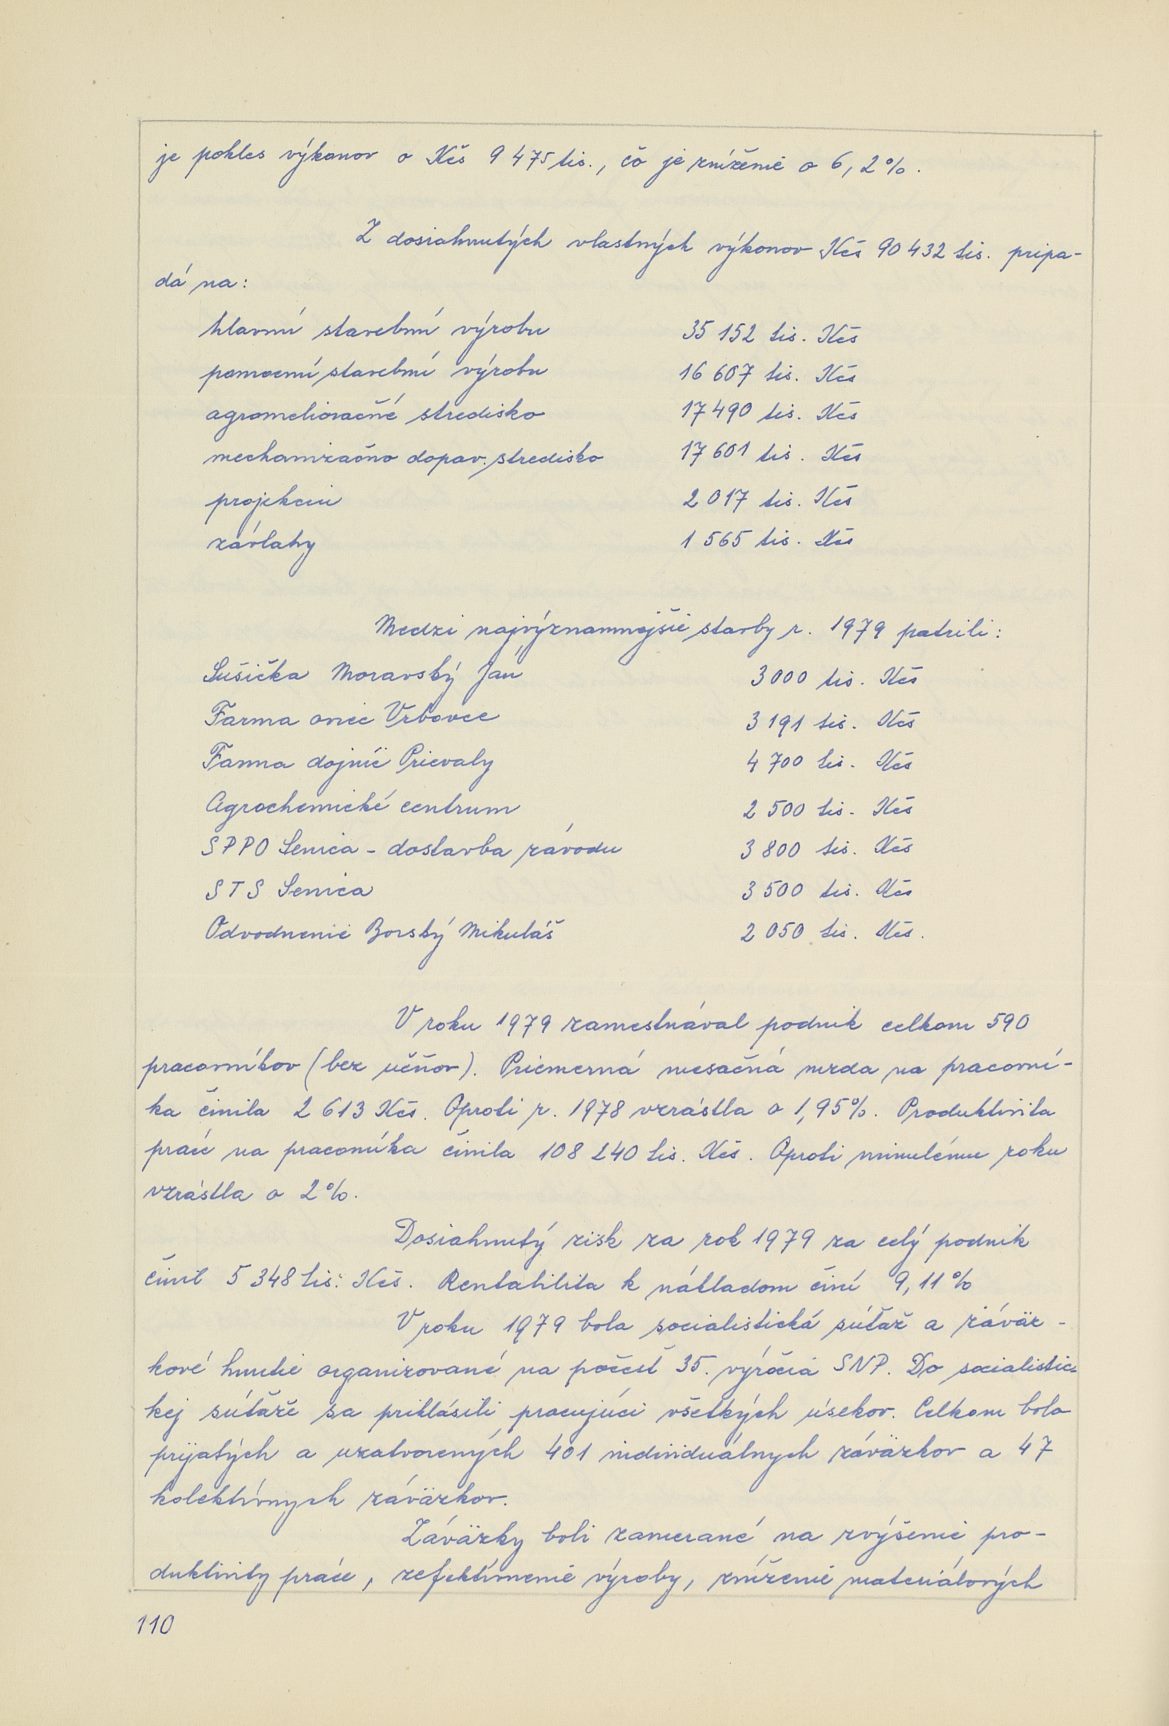 je pokles výkonov o Kčs 9 475 tis., čo je zníženie o 6,2%.
Z dosiahnutých vlastných výkonov Kčs 90 432 tis. pripa-
dá na:
hlavnú stavebnú výrobu 35 152 tis. Kčs
pomocnú stavebnú výrobu 16 607 tis. Kčs
agromelioračné stredisko 17 490 tis. Kčs
mechanizačno dopav. stredisko 17 601 tis. Kčs
projekciu 2 017 tis. Kčs
závlahy 1 565 tis. Kčs
Medzi najvýznamnejšie stavby r. 1979 patrili:
Sušička Moravský Ján 3 000 tis. Kčs
Farma oviec Vrbovce 3 191 tis. Kčs
Farma dojníc Prievaly 4 700 tis. Kčs
Agrochemické centrum 2 500 tis. Kčs
SPPO Senica - dostavba závodu 3 800 tis. Kčs
STS Senica 3 500 tis. Kčs
Odvodnenie Borský Mikuláš 2 050 tis. Kčs.
V roku 1979 zamestnával podnik celkom 590
pracovníkov (bez učňov). Priemerná mesačná mzda na pracovní-
ka činila 2 613 Kčs. Oproti r. 1978 vzrástla o 1,95%. Produktivita
práce na pracovníka činila 108 240 tis. Kčs. Oproti minulému roku
vzrástla o 2%.
Dosiahnutý zisk za rok 1979 za celý podnik
činil 5 348 tis. Kčs. Rentabilita k nákladom činí 9,11%
V roku 1979 bola socialistická súťaž a záväz-
kové hnutie organizované na počesť 35. výročia SNP. Do socialistic-
kej súťaže sa prihlásili pracujúci všetkých úsekov. Celkom bolo
prijatých a uzatvorených 401 individuálnych záväzkov a 47
kolektívnych záväzkov.
Záväzky boli zamerané na zvýšenie pro-
duktivity práce, zefektívnenie výroby, zníženie materiálových
110